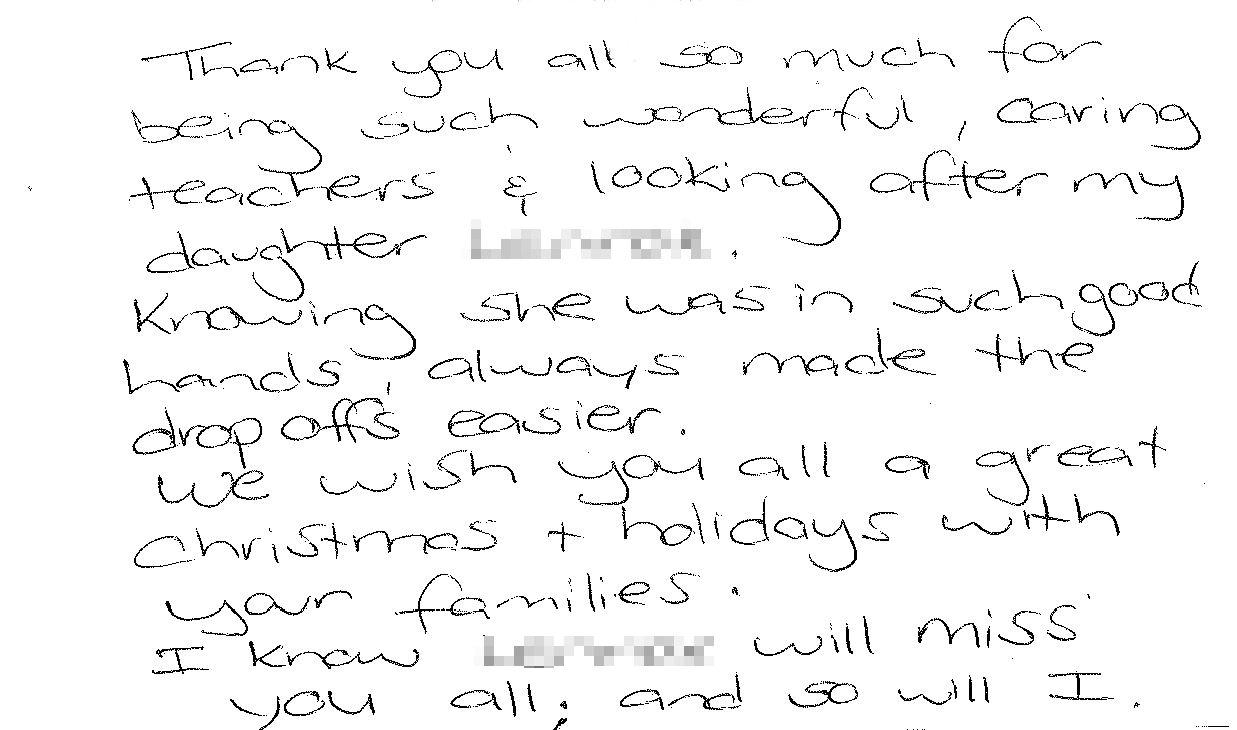 Thank you all so much for
being such wonderful, caring
teachers & looking after my
daughter .
Knowing she was in such good
hands, always made the
drop offs easier.
We wish you all a great
christmas + holidays with
your families.
I know will miss
you all; and so will I.